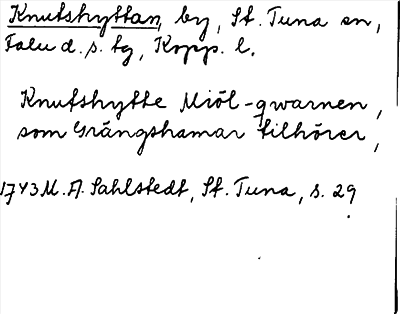 Knutshyttan, by, St. Tuna sn,
Falu d. s. tg, Kopp. l.
Knutshytte Miöl-qwarnen,
som Grängshamar tilhörer,
1743 M. A. Sahlstedt, St. Tuna, s. 29